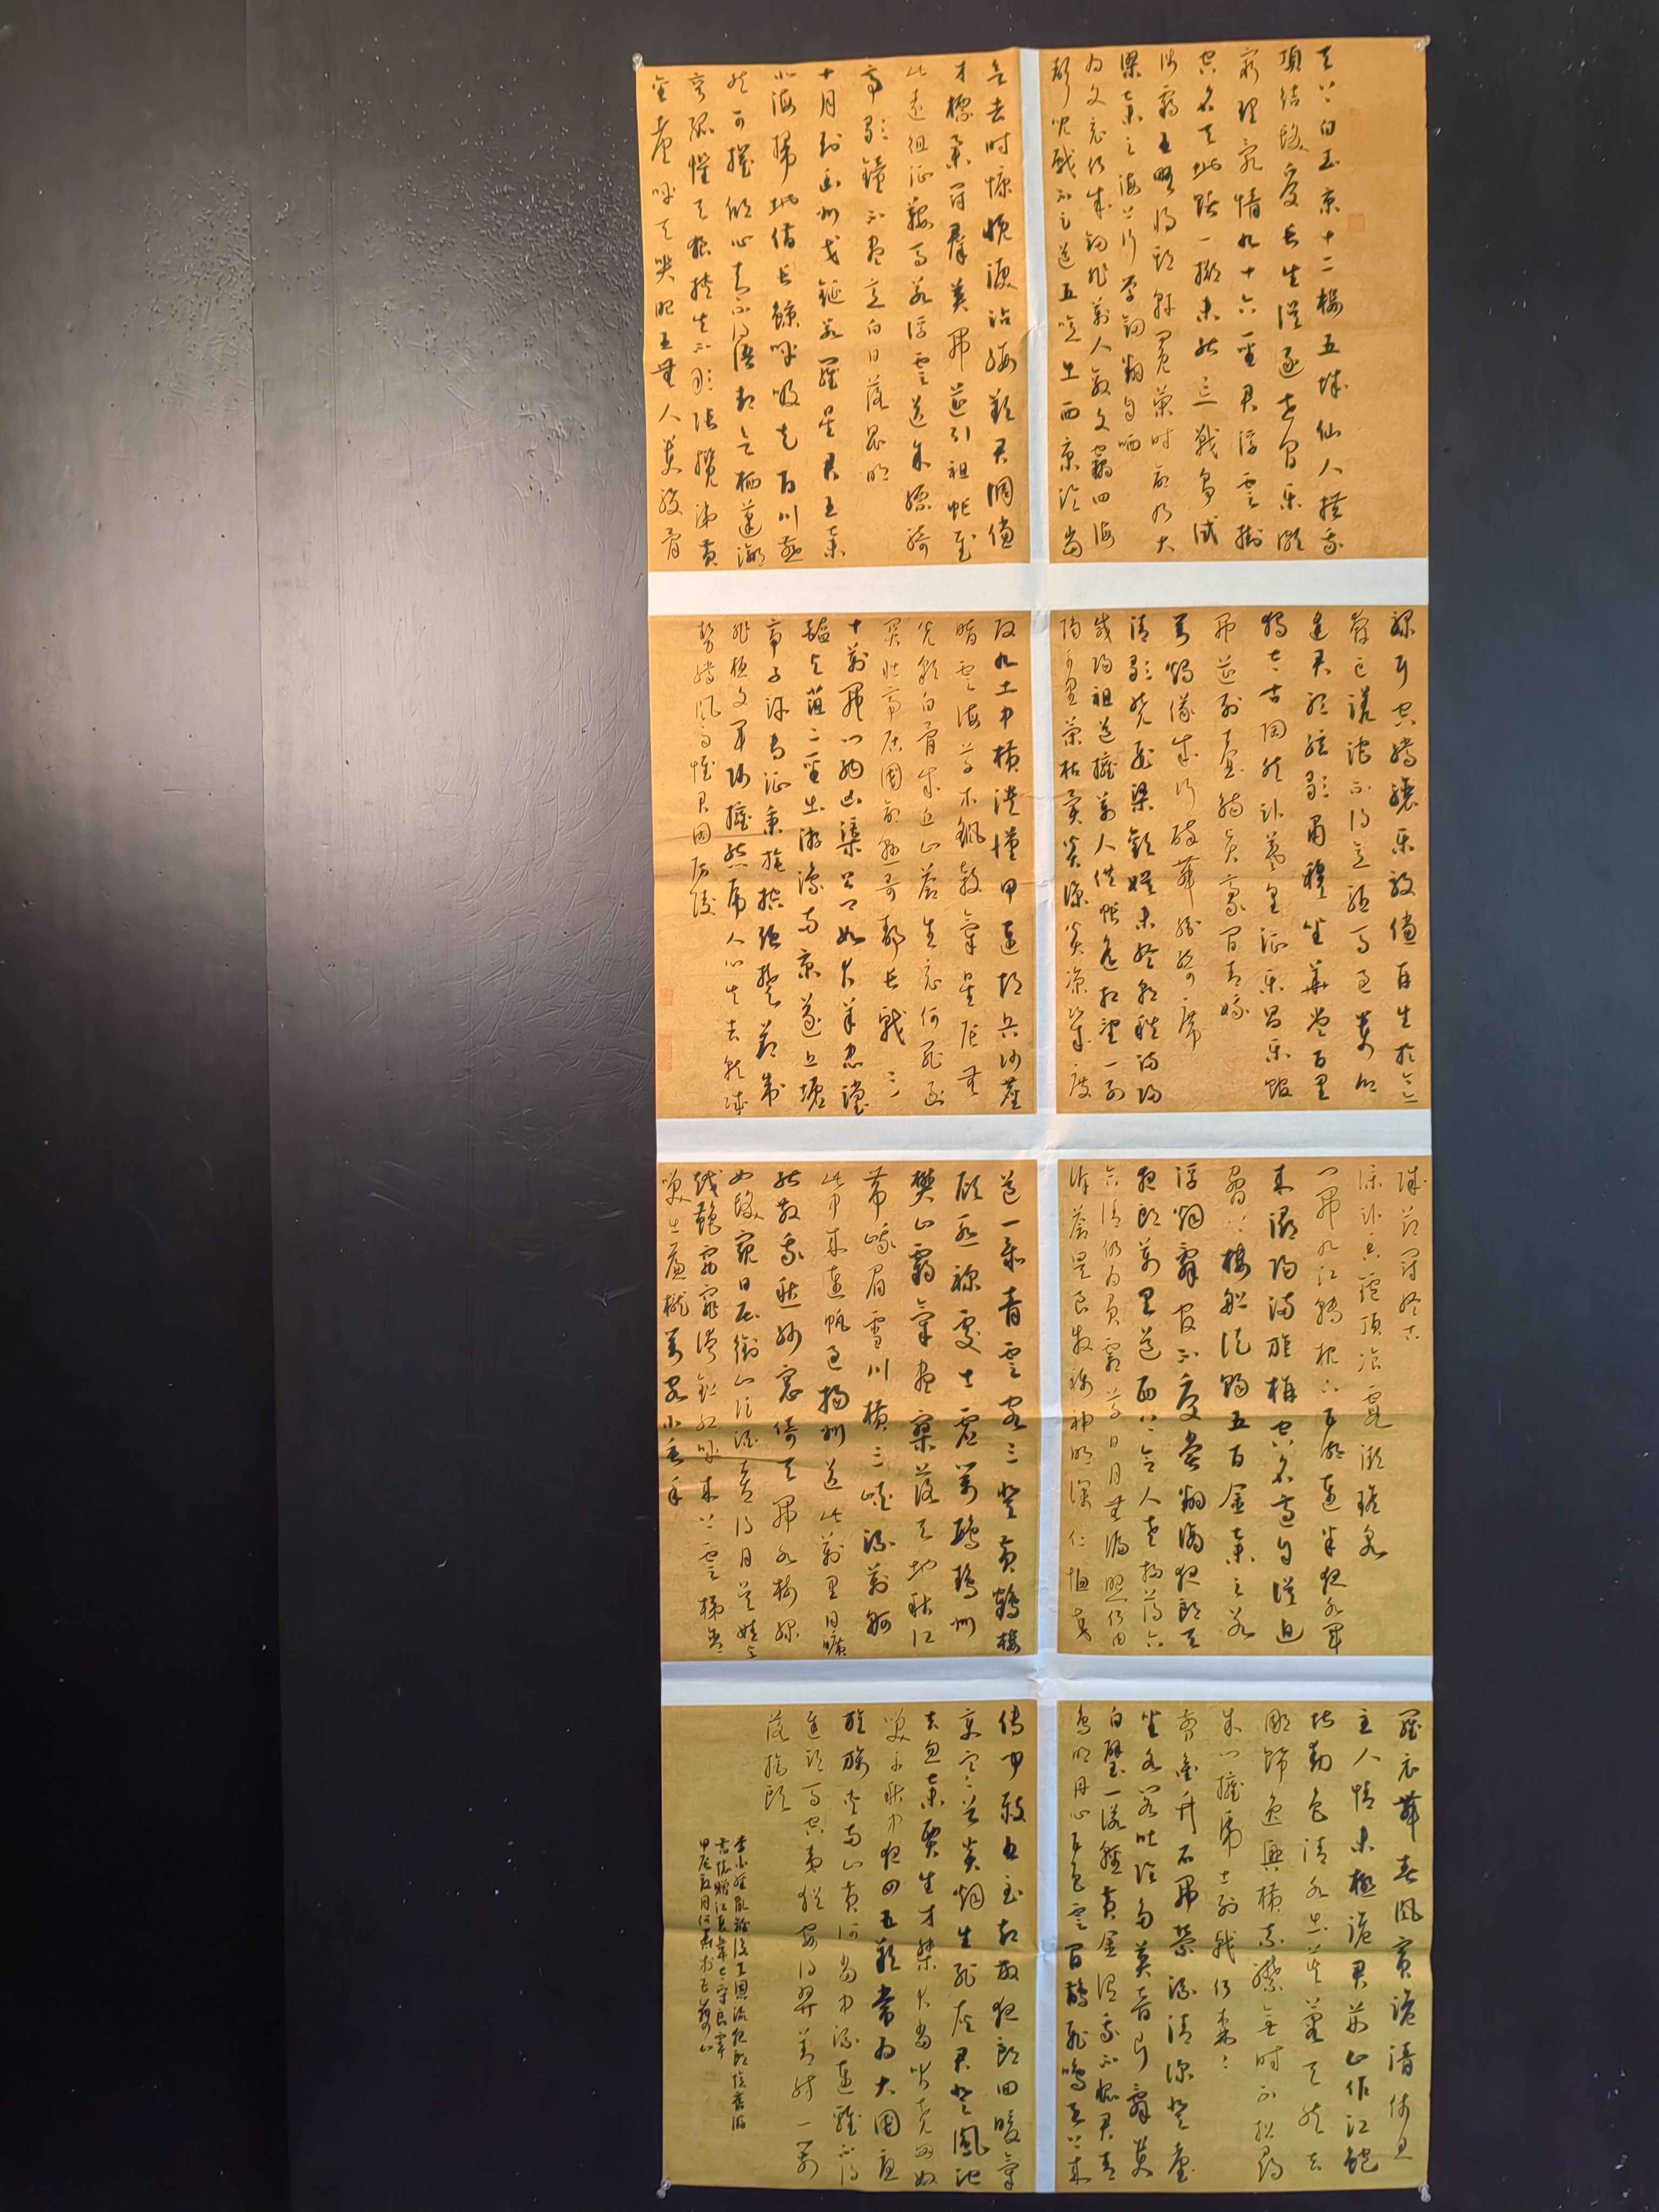 天上白玉京十二樓五城仙人撫我
頂結髮受長生誤逐世間樂頗
窮理亂情九十六聖君浮雲掛
空名天地賭一擲未能忘戰爭試
涉霸王略將期軒冕榮時命乃大
謬棄之海上行學劍翻自哂
為文竟何成劍非萬人敵文竊四海
聲兒戲不足道五噫出西京臨當
欲去時慷慨淚沾纓歎君倜儻
才標舉冠群英開筵引祖帳慰
此遠徂征鞍馬若浮雲送余驃騎
亭歌鐘不盡意白日落昆明
十月到幽州戈鋋若羅星君王棄
北海掃地借長鯨呼吸走百川燕
然可摧傾心知不得語卻欲棲蓬瀛
彎弧懼天狼挾矢不敢張攬涕黃
金臺呼天哭昭王無人貴駿骨
騄耳空騰驤樂毅儻再生於今亦
奔亡蹉跎不得意驅馬還貴鄉
逢君聽弦歌肅穆坐華堂百里
獨太古陶然臥羲皇徵樂昌樂館
開筵列壺觴賢豪間青娥
對燭儼成行醉舞紛綺席
清歌繞飛梁歡娛未終朝秩滿歸
咸陽祖道擁萬人供帳遙相望一別
隔千里榮枯異炎涼炎涼幾度
改九土中橫潰漢甲連胡兵沙塵
暗雲海草木搖殺氣星辰無
光彩白骨成丘山蒼生竟何罪函
關壯帝居國命懸哥舒長戟三
十萬開門納凶渠公卿如犬羊忠讜
醢與菹二聖出遊豫兩京遂丘墟
帝子許專征秉旄控強楚節制
非桓文軍師擁熊虎人心失去就賊
勢騰風雨惟君固房陵
誠節冠終古
僕臥香爐頂飡霞漱瑤泉
門開九江轉枕下五湖連半夜水軍
來潯陽滿旌旃空名適自誤迫
脅上樓船徒賜五百金棄之若
浮煙辭官不受賞翻謫夜郎天
夜郎萬里道西上令人老掃蕩六
合清仍為負霜草日月無偏照何由
訴蒼昊良牧稱神明深仁恤交
道一忝青雲客三登黃鶴樓
顧慚禰處士虛對鸚鵡洲
樊山霸氣盡寥落天地秋江
帶峨眉雪川橫三峽流萬舸
此中來連帆過揚州送此萬里目曠
然散我愁紗窗倚天開水樹綠
如髮窺日畏銜山促酒喜得月吳娃與
越艷窈窕誇鉛紅呼來上雲梯含
笑出簾櫳對客小垂手
羅衣舞春風賓跪請休息
主人情未極覽君荊山作江鮑
堪動色清水出芙蓉天然去
雕飾逸興橫素襟無時不招尋
朱門擁虎士列戟何森森
剪鑿竹石開縈流漲清深登臺
坐水閣吐論多英音片辭貴
白璧一諾輕黃金謂我不愧君青
鳥明丹心五色雲間鵲飛鳴天上來
傳聞赦書至卻放夜郎回暖氣
變寒谷炎煙生死灰君登鳳池
去忽棄賈生才桀犬尚吠堯匈奴
笑千秋中夜四五歎常為大國憂
旌旆夾兩山黃河當中流連雞不得
進飲馬空夷猶安得羿善射一箭
落旄頭
李白經亂離後天恩流夜郎憶舊游
書懷贈江夏韋太守良宰